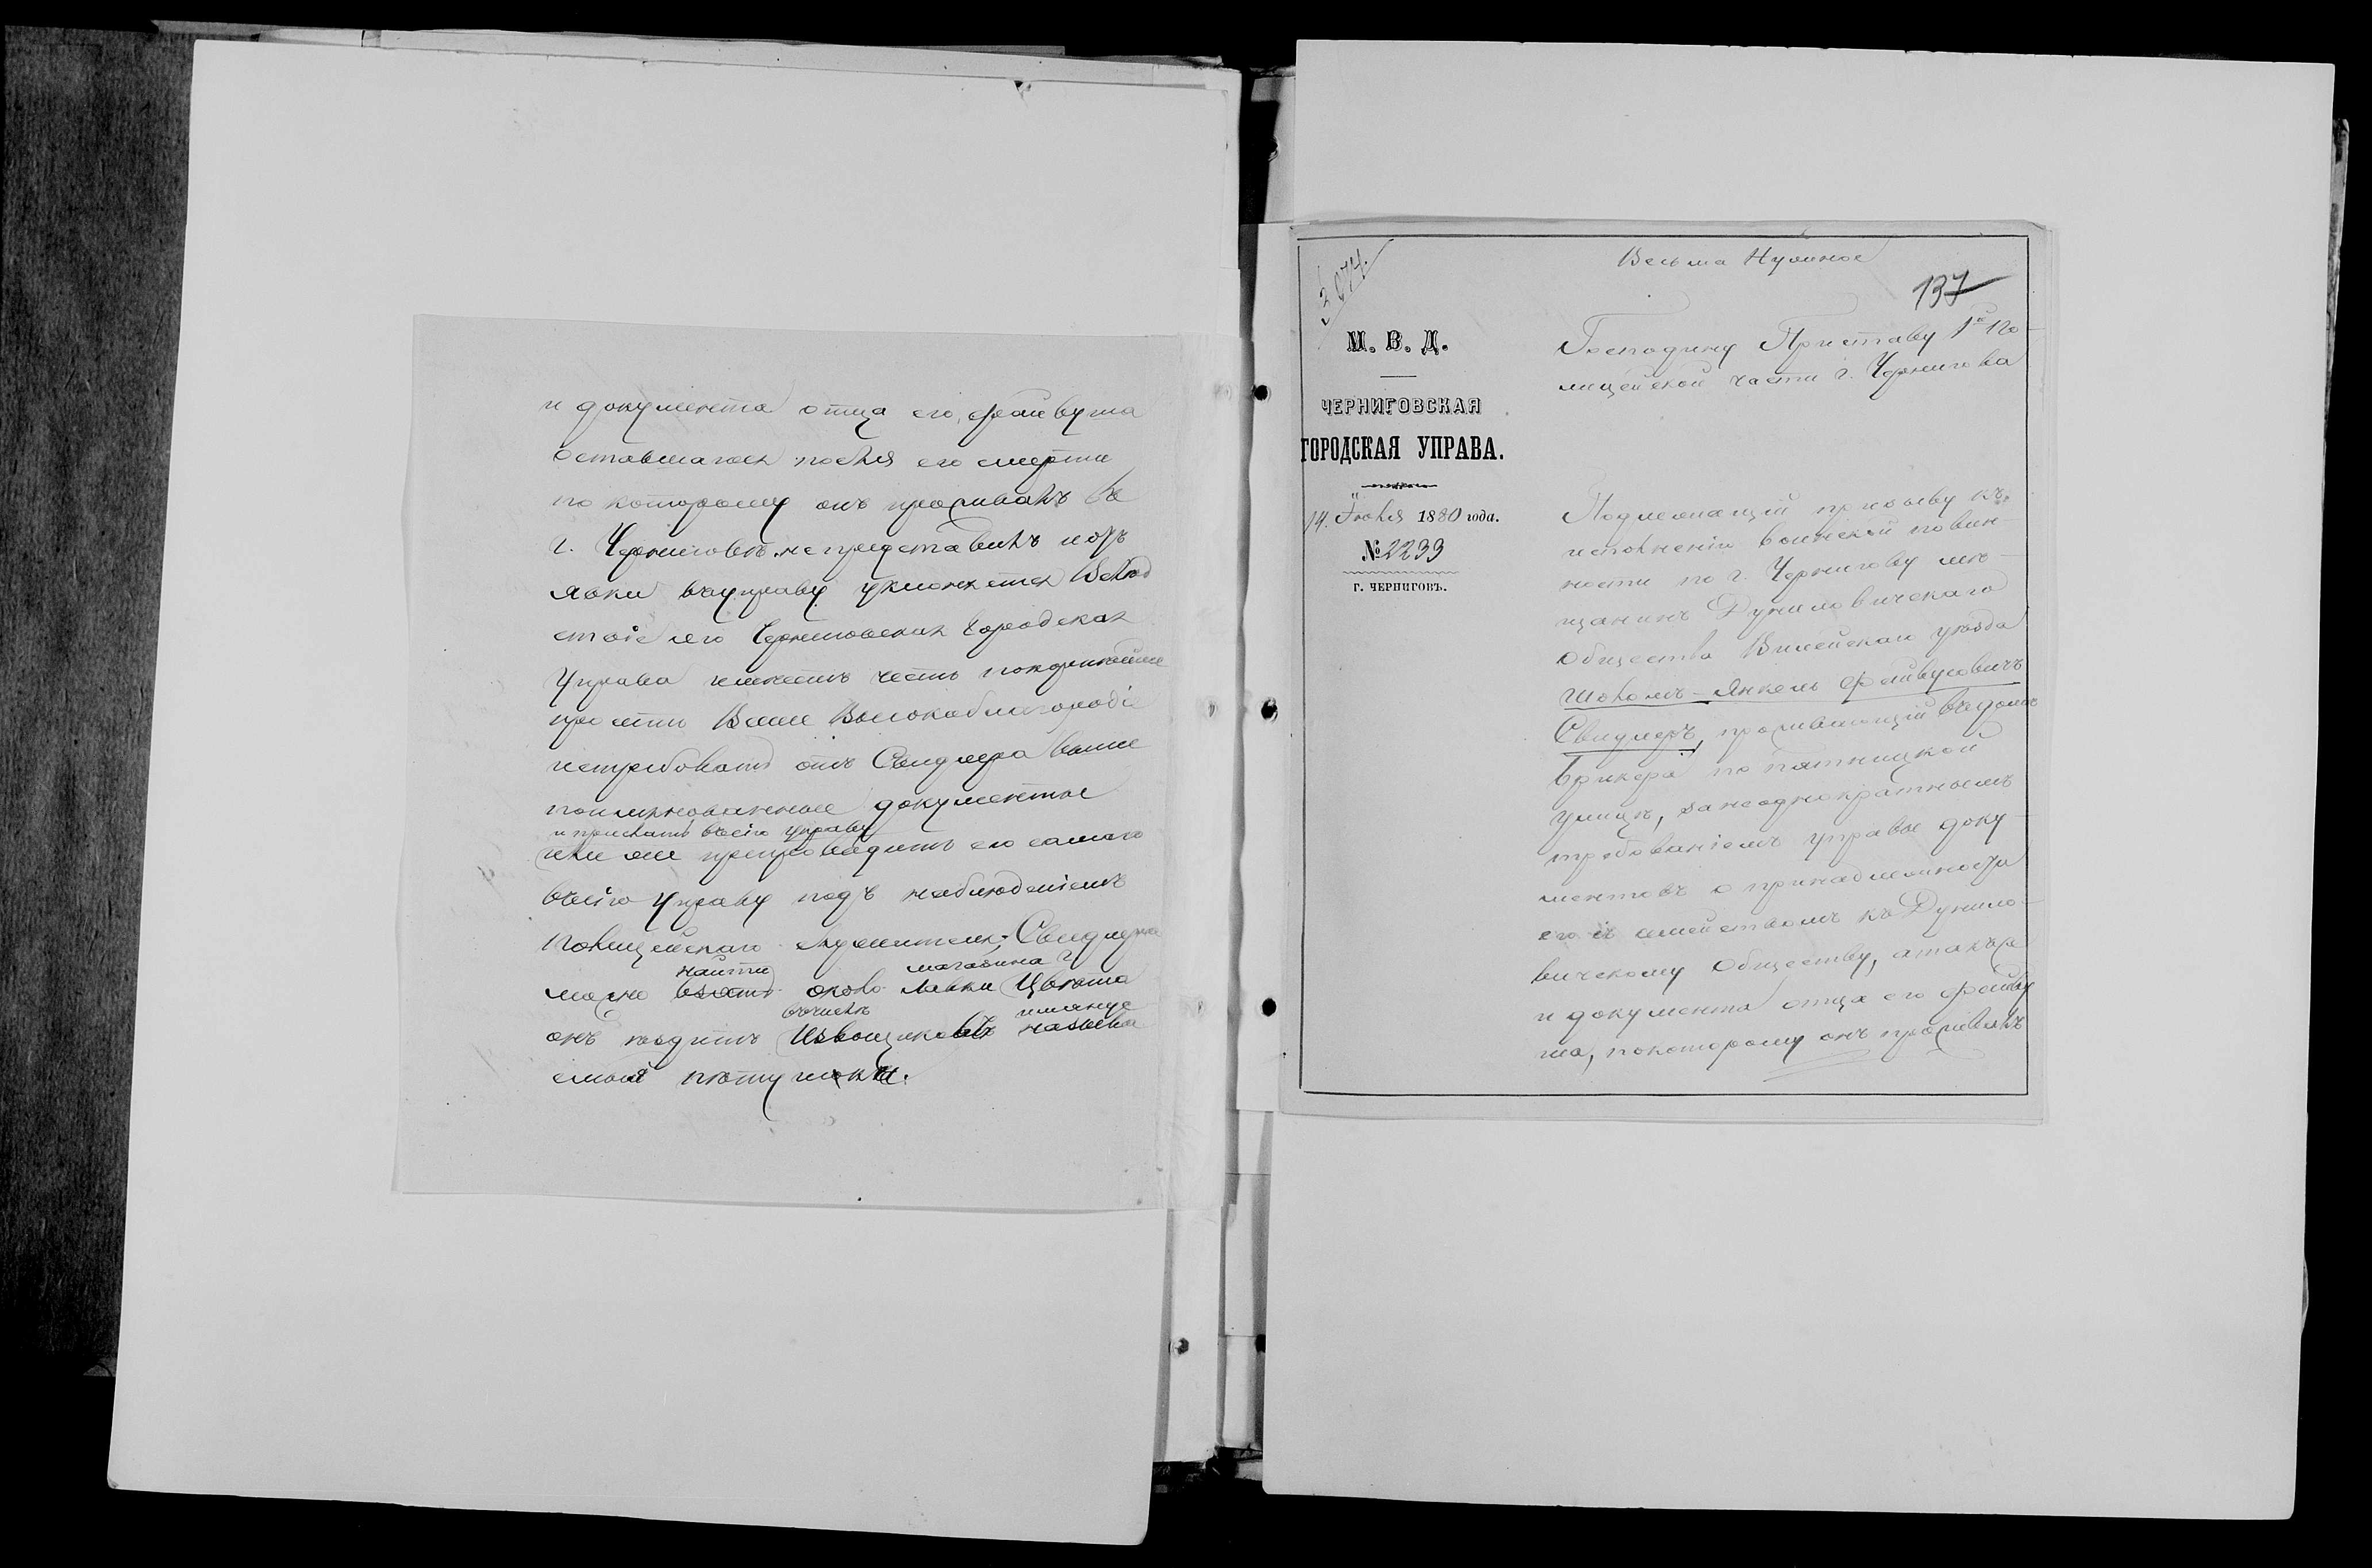 и документа отца его, Файвуша
оставшагося послѣ его смерти
по которому онъ проживалъ въ
г. Черниговѣ не представилъ и отъ
явки въ управу уклоняется Вслѣд
ствіе чего Черниговская Городская
Управа имѣетъ честь покорнѣйше
просить Ваше Высокоблагородіе
истребовать отъ Свидлера выше
поимянованные документы
и прислать въ сію управу
или же препроводить его самаго
въ сію Управу подъ наблюденіемъ
Полицейскаго служителя; Свидлера
найти магазина г
можно взять около лавки Цвѣта
онъ ѣздитъ Извощикомъ называ
емый пѣтушокъ.
Весьма Нужное
137
М. В. Д.
ЧЕРНИГОВСКАЯ
ГОРОДСКАЯ УПРАВА.
14. Іюля 1880 года.
№ 2233
г. ЧЕРНИГОВЪ.
Господину Приставу 1й По-
лицейской части г. Чернигова
Подлежащій призыву къ
исполненію воинской повин-
ности по г. Чернигову мѣ-
щанинъ Дуниловичскаго
Общества Вилейскаго уѣзда
Шоломъ-Янкель Файвусовичъ
Свидлеръ, проживающій въ домѣ
Брикера по пятницкой
улицѣ, за неоднократнымъ
требованіемъ управы доку-
ментовъ о принадлежности
его съ семействомъ къ Дунило-
вичскому Обществу, а также
и документа отца его Файву
ша, по которому онъ проживалъ